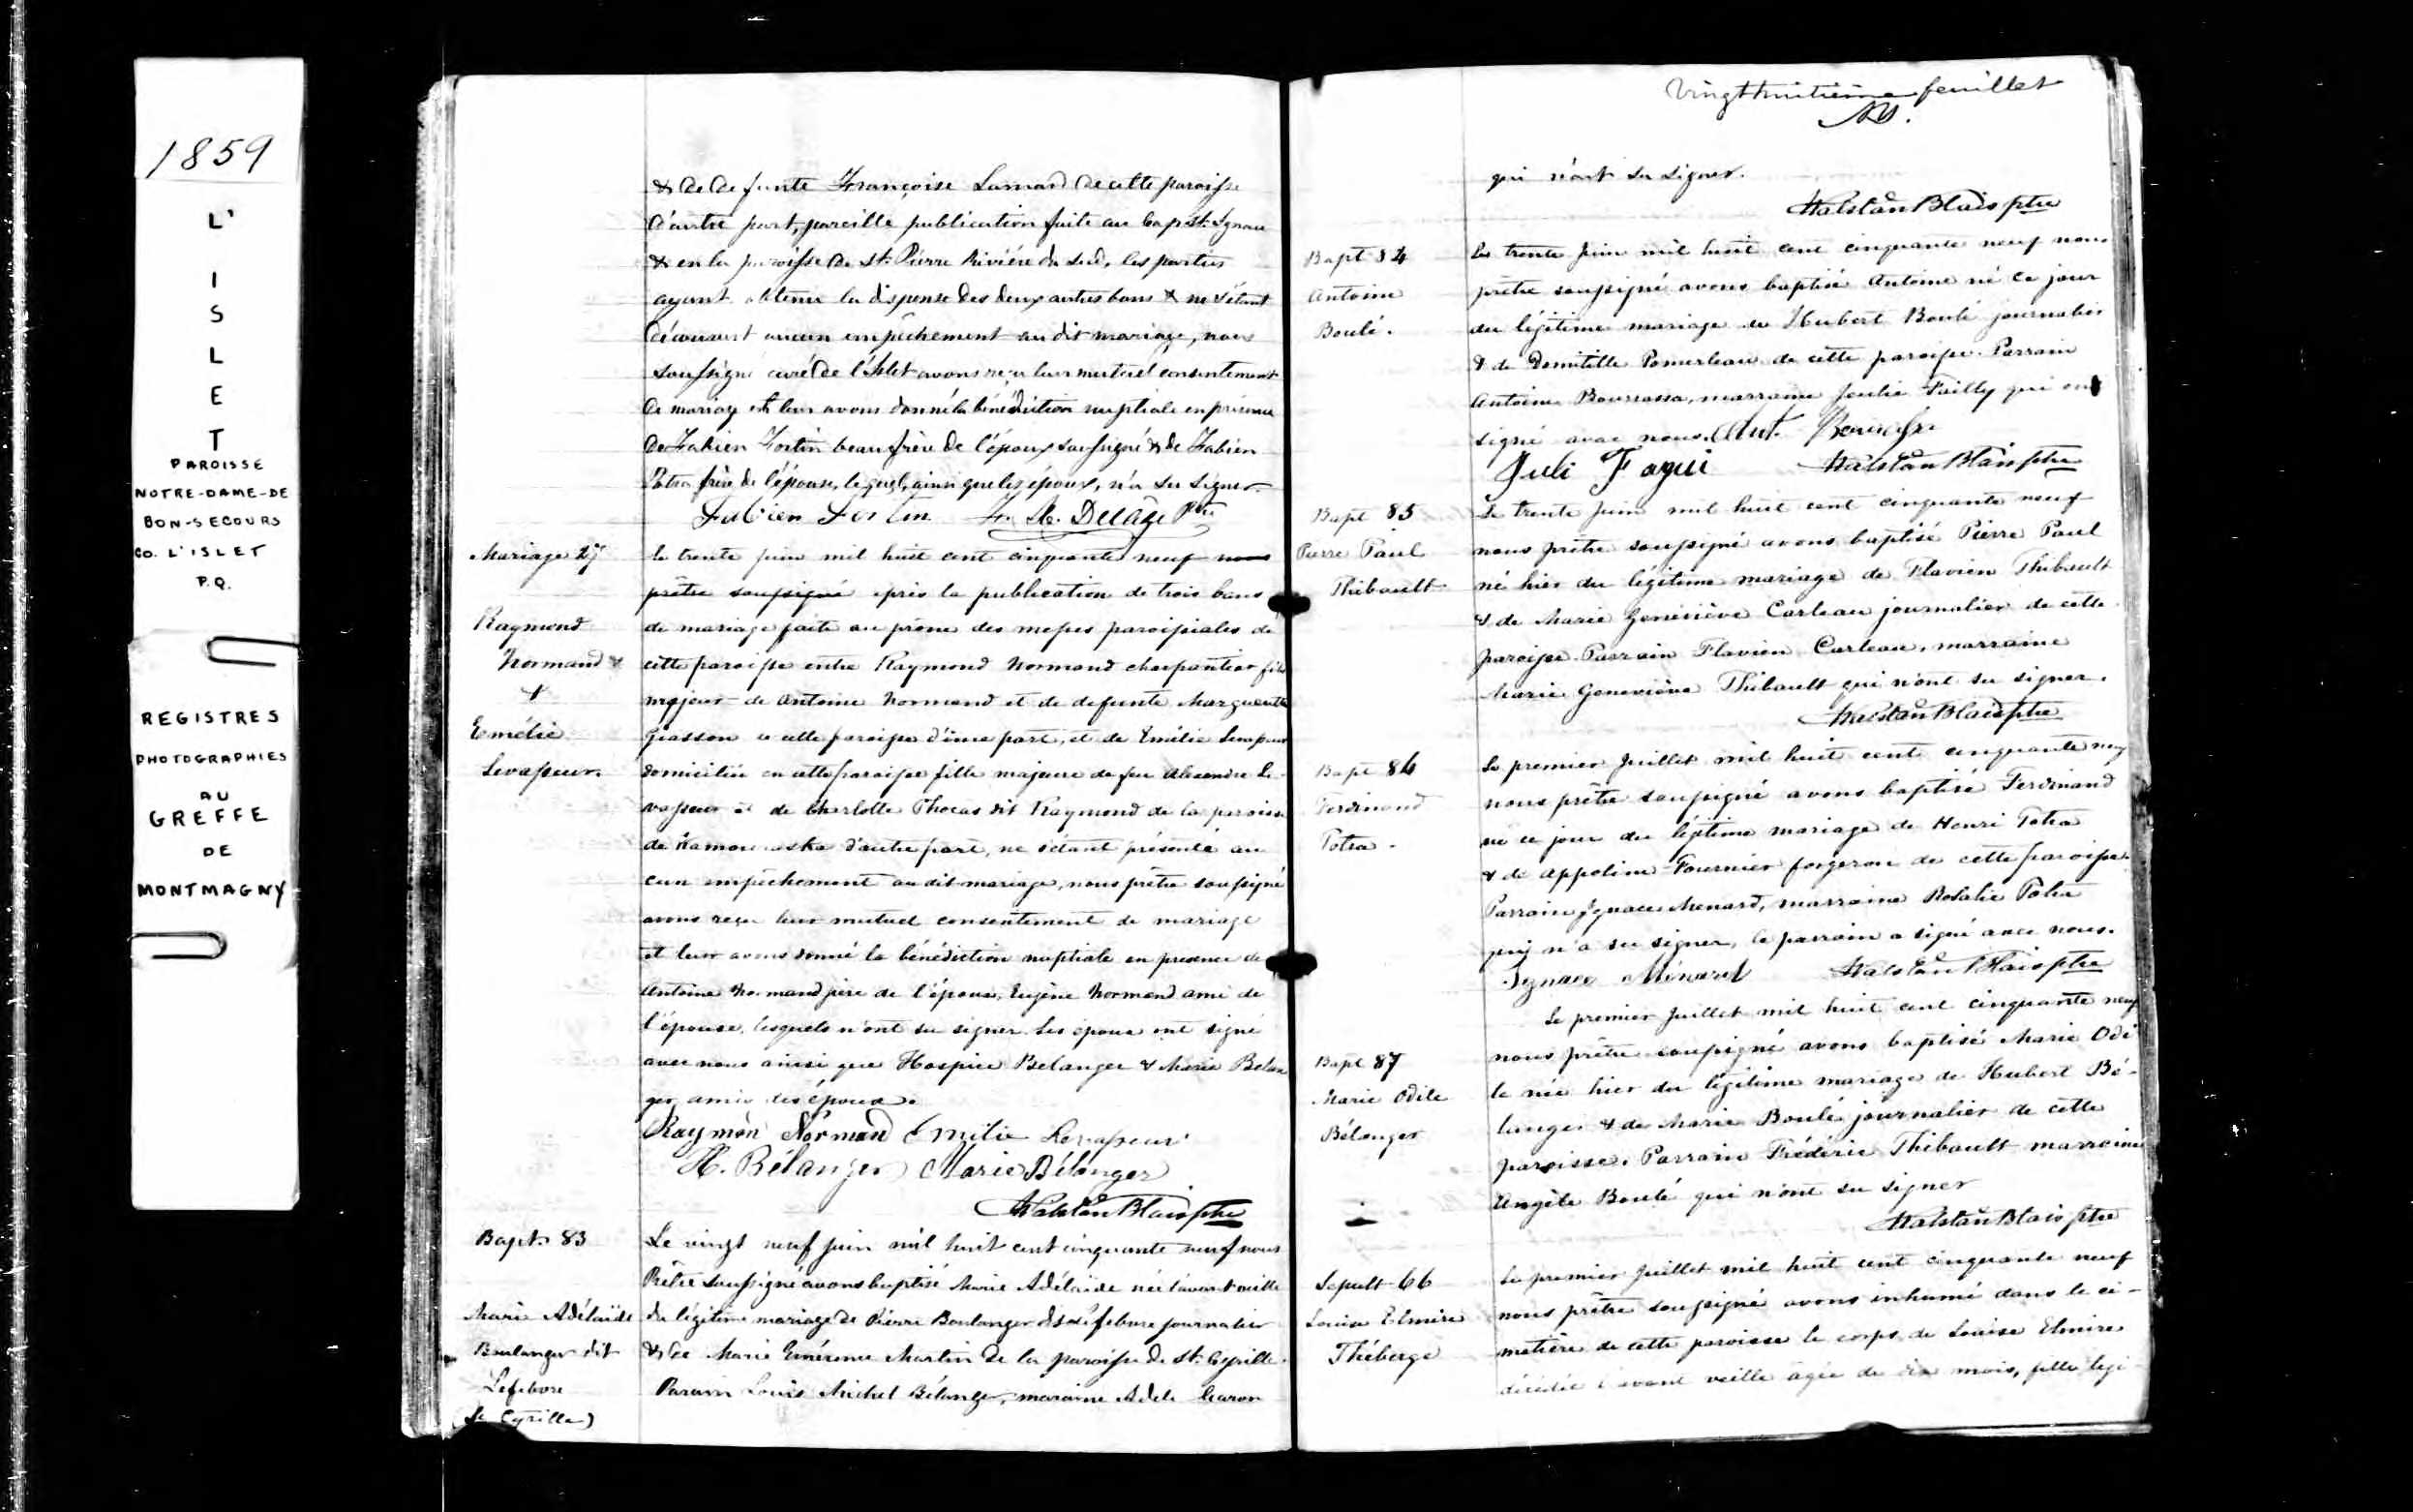 1859
L'
I
S
L
E
T
PAROISSE
NOTRE-DAME-DE
BON-SECOURS
CO. L'ISLET
P.Q.
REGISTRES
PHOTOGRAPHIES
AU
GREFFE
DE
MONTMAGNY
& de defunte Françoise Lamard de cette paroisse
d'autre part, pareille publication faite au Cap St. Ignace
& en la paroisse de St. Pierre Rivière du Sud, les parties
ayant obtenu la dispense des deux autres bans & ne s'étant
découvert aucun empêchement au dit mariage, nous
soussigné curé de l'Islet avons reçu leur mutuel consentement
de mariage et leur avons donné la bénédiction nuptiale en présence
de Fabien Fortin beaufrère de l'époux soussigné & de Fabien
Potra frère de l'épouse, lequel, ainsi que les époux, n'a su signer.
Fabien Fortin F. X. Delâge Ptre
Mariage
Raymond
Normand &
&
Emélie
Levasseur.
le trente juin mil huit cent cinquante neuf nous
prêtre soussigné après la publication de trois bans
de mariage faite au prône des messes paroissiales de
cette paroisse entre Raymond Normand charpentier fils
majeur de Antoine Normand et de defunte Marguerite
Giasson de cette paroisse d'une part, et de Emélie Levasseur
domiciliée en cette paroisse fille majeure de feu Alexendre Le-
vasseur et de Charlotte Phocas dit Raymond de la paroisse
de Kamouraska d'autre part, ne s'étant présenté au
cun empêchement au dit mariage, nous prêtre soussigné
avons reçu leur mutuel consentement de mariage
et leur avons donné la bénédiction nuptiale en presence de
Antoine Normand père de l'époux, Eugène Normand ami de
l'épouse, lesquels n'ont su signer. Les époux ont signé
avec nous ainsi que Hospice Belanger & Marie Belan
ger amis des époux.
Raymon Norman Emilie Levasseur
H. Bélanger Marie Bélanger
Walstan Blais ptre
Bapt. 83
Marie Adélaïde
Boulanger dit
Lefebvre
(St Cyrille)
Le vingt neuf juin mil huit cent cinquante neuf nous
Prêtre soussigné avons baptisé Marie Adélaïde née l'avant veille
du légitime mariage de Pierre Boulanger dit Lefebvre journalier
& de Marie Emérence Martin de la paroisse de St. Cyrille.
Parain Louis Michel Bélanger, maraine Adele Caron
vingthuitième feuillet
qui n'ont su signer.
Walstan Blais ptre
Bapt 84
Antoine
Boulé.
Le trente juin mil huit cent cinquante neuf nous
prêtre soussigné avons baptisé Antoine né ce jour
du légitime mariage de Hubert Boulé journalier
& de Domitille Pomerleau de cette paroisse. Parrain
Antoine Bourassa, marraine Julie Failly qui ont
signé avec nous. Ant. Bourassa
Juli Fagui Walstan Blais ptre
Bapt 85
Pierre Paul
Thibault
Le trente juin mil huit cent cinquante neuf
nous prêtre soussigné avons baptisé Pierre Paul
né hier du légitime mariage de Flavien Thibault
& de Marie Geneviève Carleau journalier de cette
paroisse. Parrain Flavien Carleau, marraine
Marie Geneviève Thibault qui n'ont su signer.
Walstan Blais ptre
Bapt 86
Ferdinand
Potra.
Le premier Juillet mil huit cent cinquante neuf
nous prêtre soussigné avons baptisé Ferdinand
né ce jour du légitime mariage de Henri Potra
& de Appoline Fournier forgeron de cette paroisse.
Parrain Ignace Menard, marraine Rosalie Potra
qui n'a su signer, le parrain a signé avec nous.
Ignace Ménard Walstan Blais ptre
Bapt 87
Marie Odile
Bélanger
Le premier Juillet mil huit cent cinquante neuf
nous prêtre soussigné avons baptisé Marie Odi
le née hier du légitime mariage de Hubert Bé-
langer & de Marie Boulé journalier de cette
paroisse. Parrain Frédéric Thibault marraine
Angèle Boulé qui n'ont su signer
Walstan Blais ptre
Sepult 66
Louise Elmire
Théberge
Le premier Juillet mil huit cent cinquante neuf
nous prêtre soussigné avons inhumé dans le ci-
metière de cette paroisse le corps de Louise Elmire
décédée l'avant veille agée de dix mois, fille légi